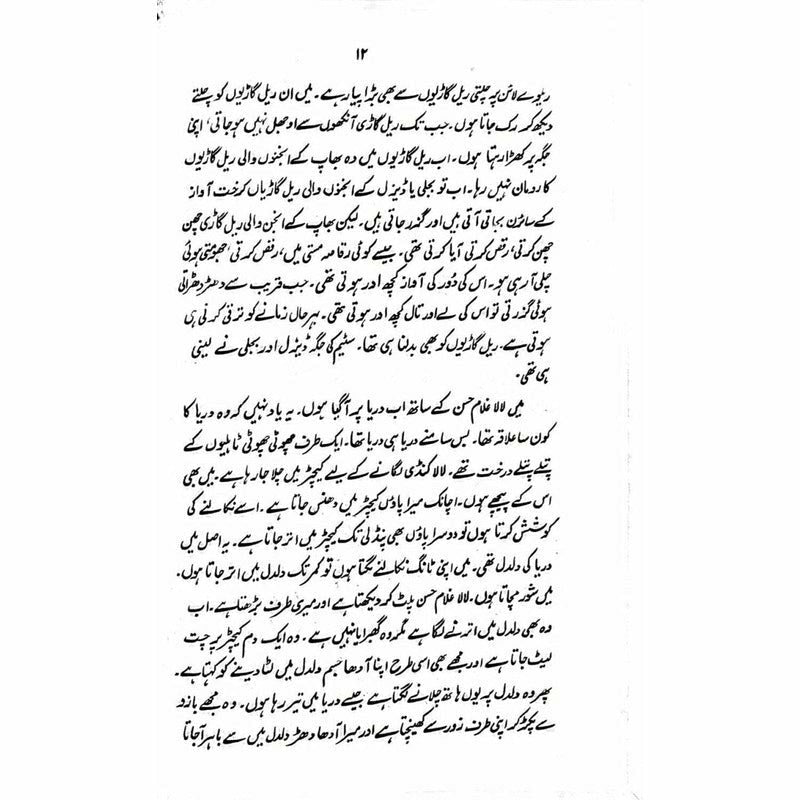 ۱۲
ریلوے لائن پہ چلتی ریل گاڑیوں سے بھی بڑا پیار ہے۔ میں ان ریل گاڑیوں کو چلتے
دیکھ کر رک جاتا ہوں۔ جب تک ریل گاڑی آنکھوں سے اوجھل نہیں ہو جاتی، اپنی
جگہ پر کھڑا رہتا ہوں۔ اب ریل گاڑیوں میں وہ بھاپ کے انجنوں والی ریل گاڑیوں
کا رومان نہیں رہا۔ اب تو بجلی یا ڈیزل کے انجنوں والی ریل گاڑیاں کرخت آواز
کے سائرن بجاتی آتی ہیں اور گذر جاتی ہیں۔ لیکن بھاپ کے انجن والی ریل گاڑی چھن
چھن کرتی، رقص کرتی آیا کرتی تھی۔ جیسے کوئی رقاصہ مستی میں، رقص کرتی، جھومتی ہوئی
چلی آ رہی ہو۔ اس کی دُور کی آواز کچھ اور ہوتی تھی۔ جب قریب سے دھڑدھڑاتی
ہوئی گزرتی تو اس کی لے اور تال کچھ اور ہوتی تھی۔ بہرحال زمانے کو ترقی کرنی ہی
ہوتی ہے۔ ریل گاڑیوں کو بھی بدلنا ہی تھا۔ سٹیم کی جگہ ڈیزل اور بجلی نے لینی
ہی تھی۔
میں لالا غلام حسن کے ساتھ اب دریا پر آ گیا ہوں۔ یہ یاد نہیں کہ وہ دریا کا
کون سا علاقہ تھا۔ بس سامنے دریا ہی دریا تھا۔ ایک طرف چھوٹی چھوٹی ٹاہلیوں کے
پتلے پتلے درخت تھے۔ لالا کنڈی لگانے کے لیے کیچڑ میں چلا جا رہا ہے۔ میں بھی
اس کے پیچھے ہوں۔ اچانک میرا پاؤں کیچڑ میں دھنس جاتا ہے۔ اسے نکالنے کی
کوشش کرتا ہوں تو دوسرا پاؤں بھی پنڈلی تک کیچڑ میں اتر جاتا ہے۔ یہ اصل میں
دریا کی دلدل تھی۔ میں اپنی ٹانگ نکالنے لگتا ہوں تو کمر تک دلدل میں اتر جاتا ہوں۔
میں شور مچاتا ہوں۔ لالا غلام حسن پلٹ کر دیکھتا ہے اور میری طرف بڑھتا ہے۔ اب
وہ بھی دلدل میں اترنے لگا ہے مگر وہ گھبرایا نہیں ہے۔ وہ ایک دم کیچڑ پر چت
لیٹ جاتا ہے اور مجھے بھی اسی طرح اپنا آدھا جسم دلدل میں لٹا دینے کو کہتا ہے۔
پھر وہ دلدل پر یوں ہاتھ چلانے لگتا ہے جیسے دریا میں تیر رہا ہوں۔ وہ مجھے بازو
سے پکڑ کر اپنی طرف زور سے کھینچتا ہے اور میرا آدھا دھڑ دلدل میں سے باہر آ جاتا